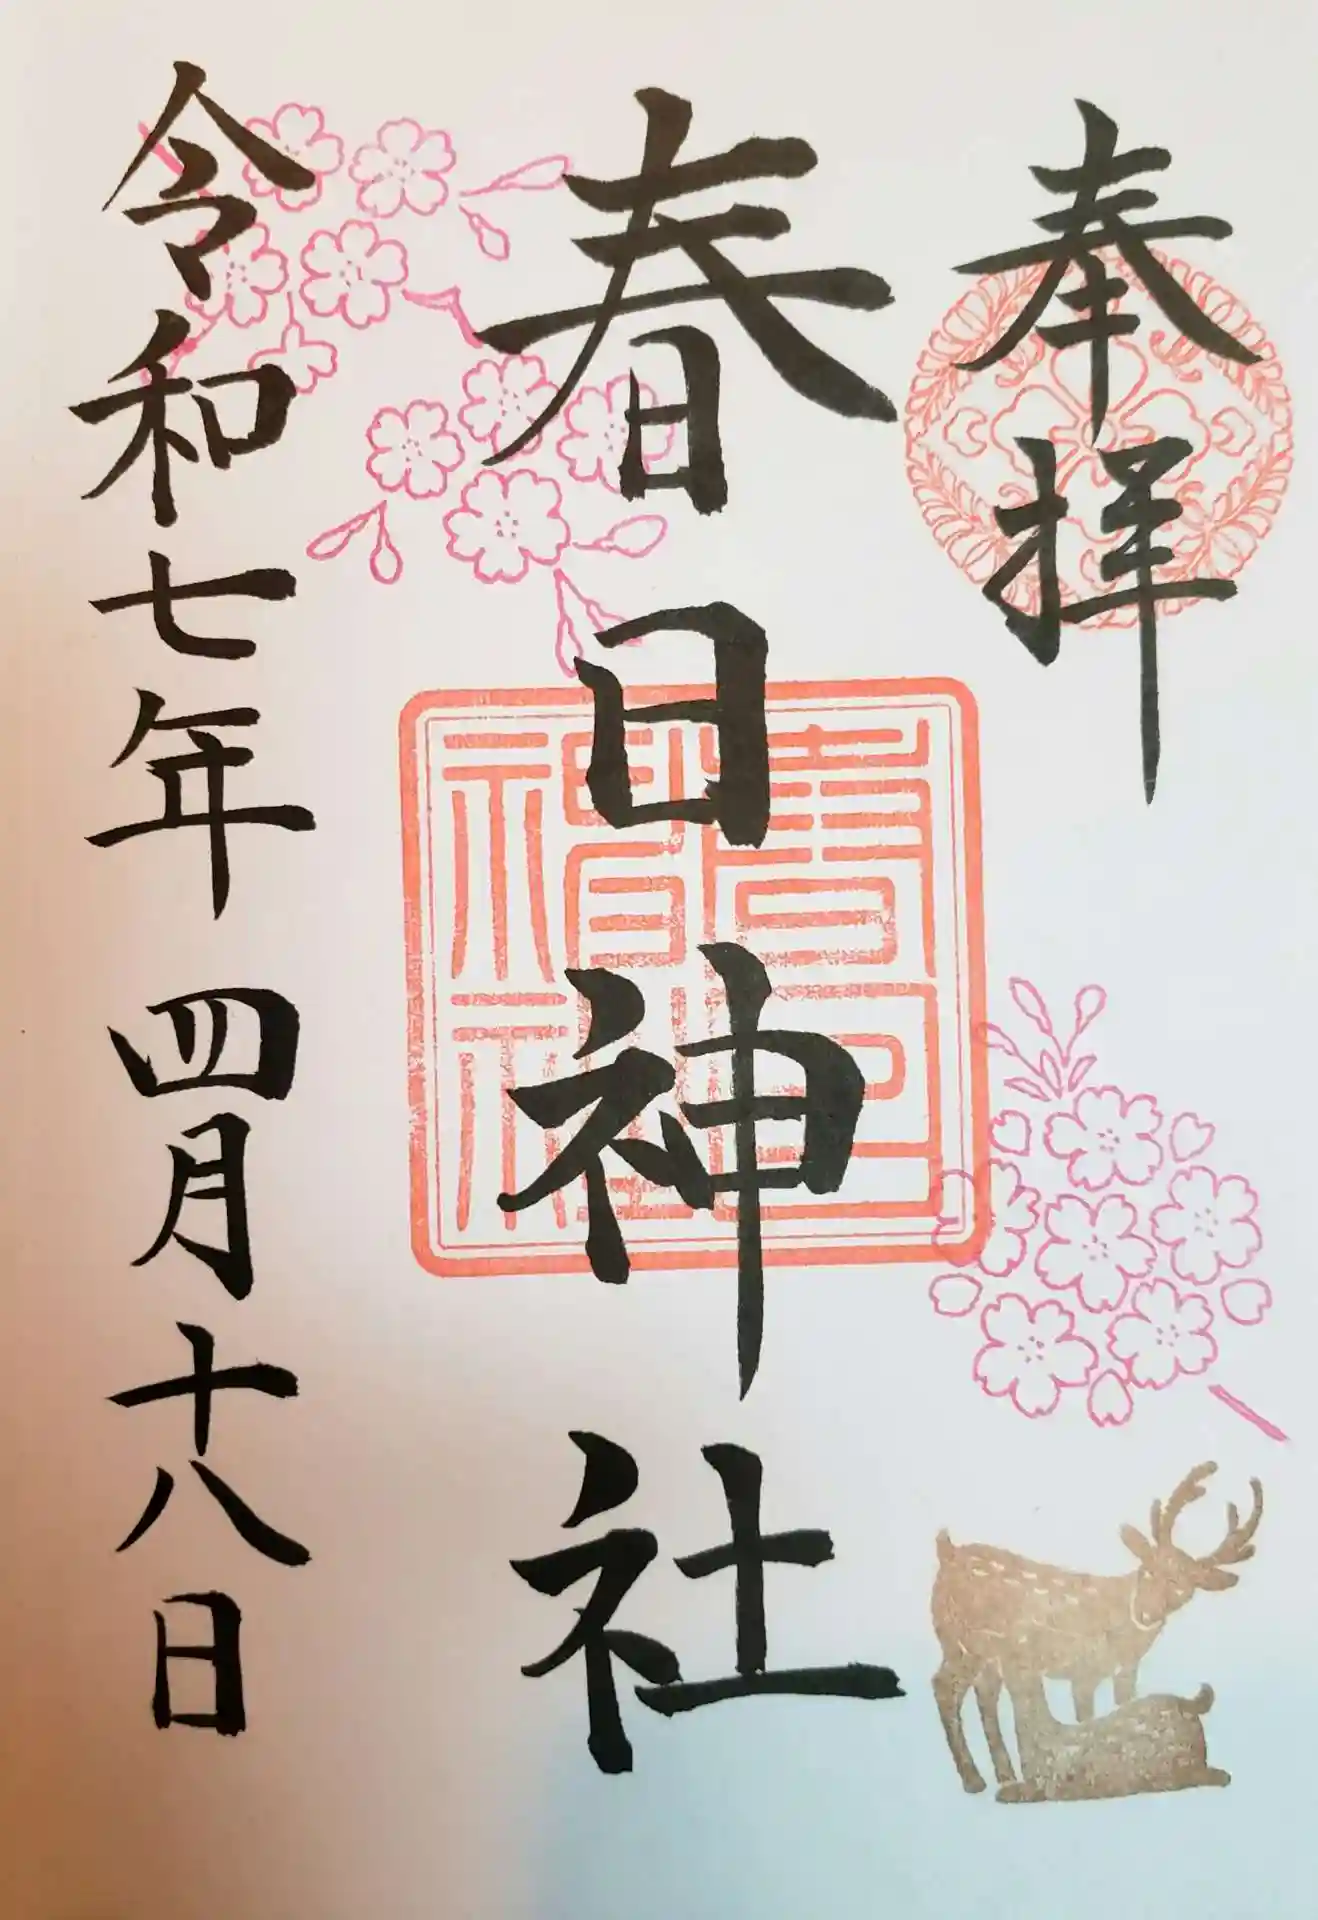 奉拝
春日神社
春日神社
令和七年四月十八日